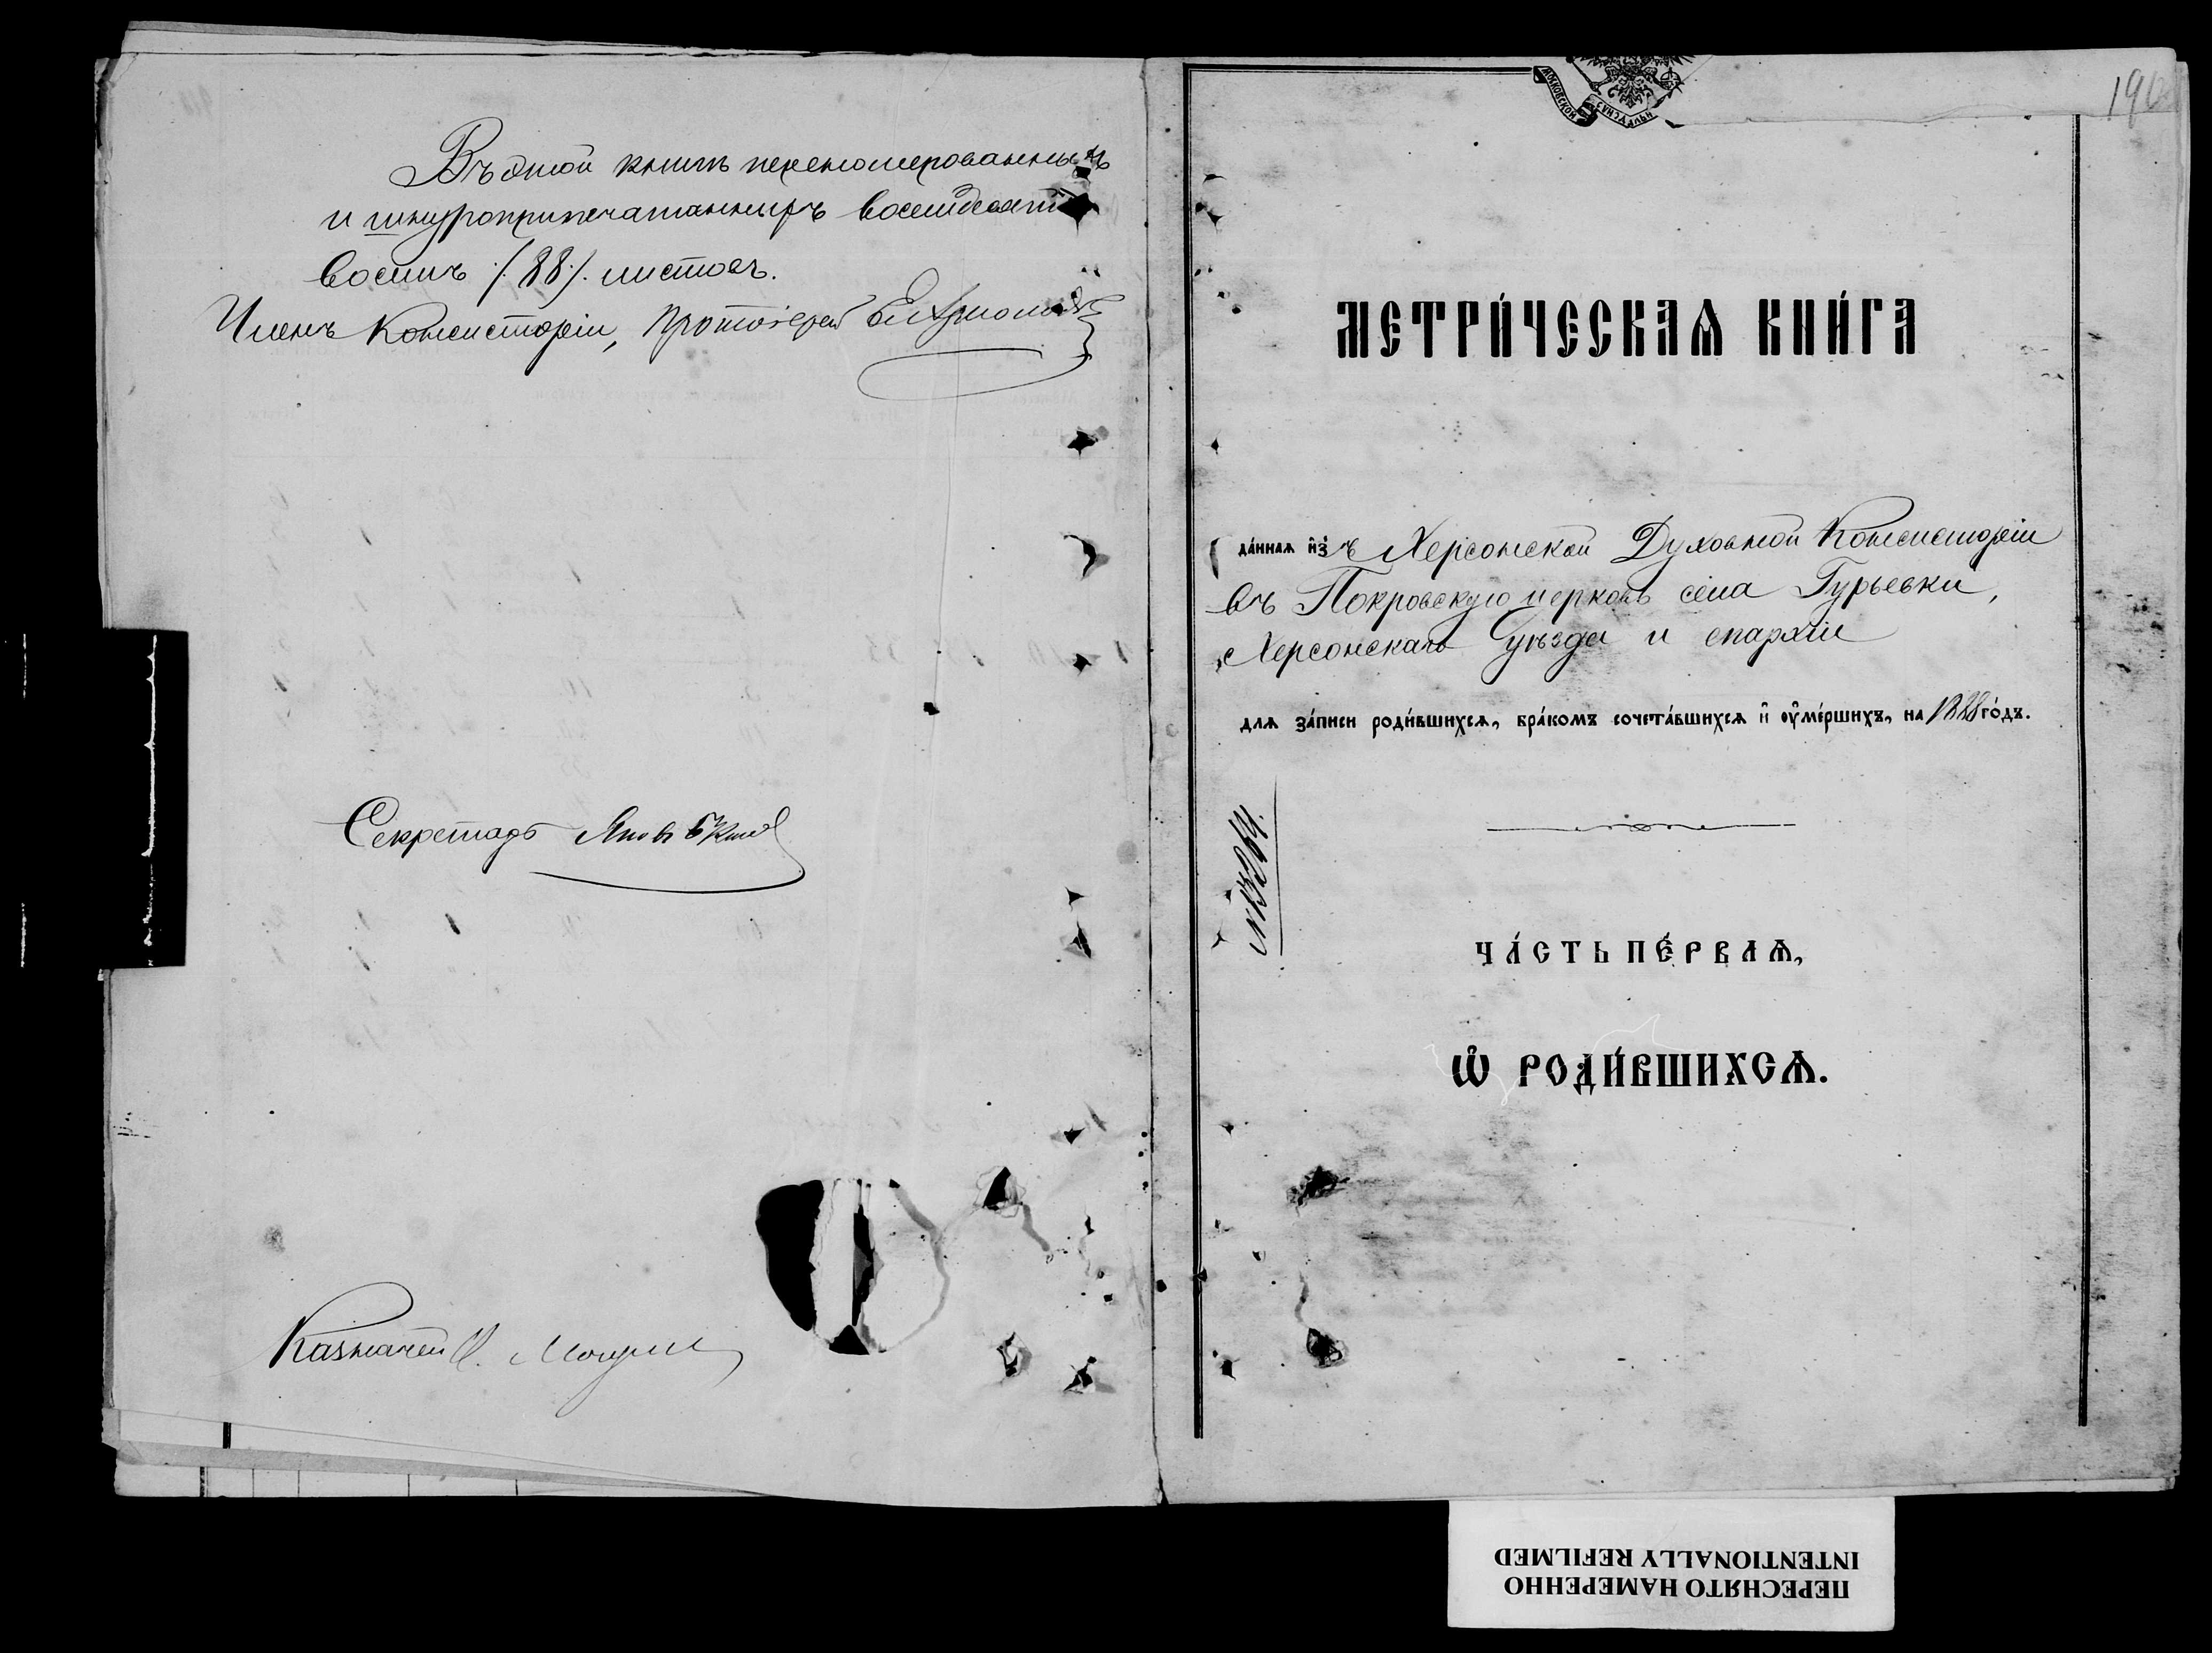 Въ этой книгѣ перенумерованныхъ
и шнуроприпечатанныхъ восемьдесятъ
восемь /88/. листовъ.
Членъ Консисторіи, Протоіерей
Секретарь
Казначей
190
МОСКОВСКОЙ
СѴНОДАЛЬН
МЕТРИ́ЧЕСКАѦ КНИ́ГА
да́ннаѧ и҆з̾ъ Херсонской Духовной Консисторіи
въ Покровскую церковь села Гурьевки,
Херсонскаго уѣзда и епархіи
длѧ за́писи роди́вшихсѧ, бра́комъ сочета́вшихсѧ и҆ оу҆ме́ршихъ, на 1888 го́дъ.
ЧА́СТЬ ПЕ́РВАѦ,
Ѡ҆ РОДИ́ВШИХСѦ.
ПЕРЕСНЯТО НАМЕРЕННО
INTENTIONALLY REFILMED